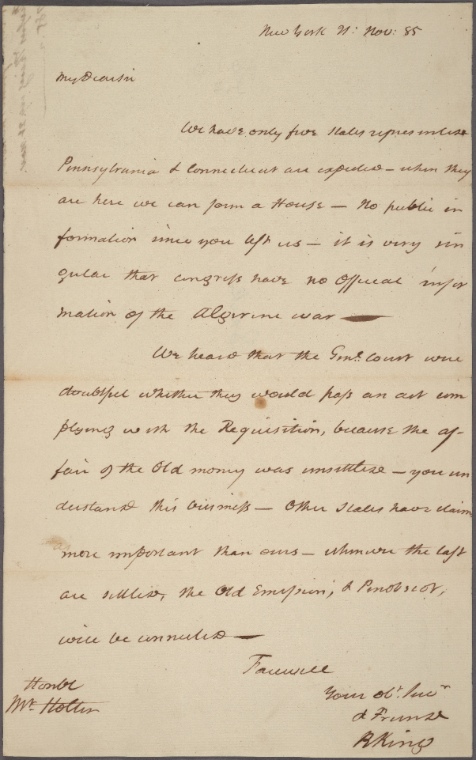 New York 21: Nov: 85
My Dear sir
We have only five States represented
Pennsylvania & Connecticut are expected – when they
are here we can form a House – No public in
formation since you left us – it is very sin
gular that congress have no Official infor
mation of the Algerine war —
We heard that the Genl. Court were
doubtful whether they would pass an act com
plying with the Requisition, because the af-
fair of the Old money was unsettled – you un
derstand this business – Other States have claims
more important than ours – whenever the last
are settled, the Old Emission, & Penobscot,
will be
Farewell
Your obt. Servt
& Friend
RKing
Honbl
Mr. Holten